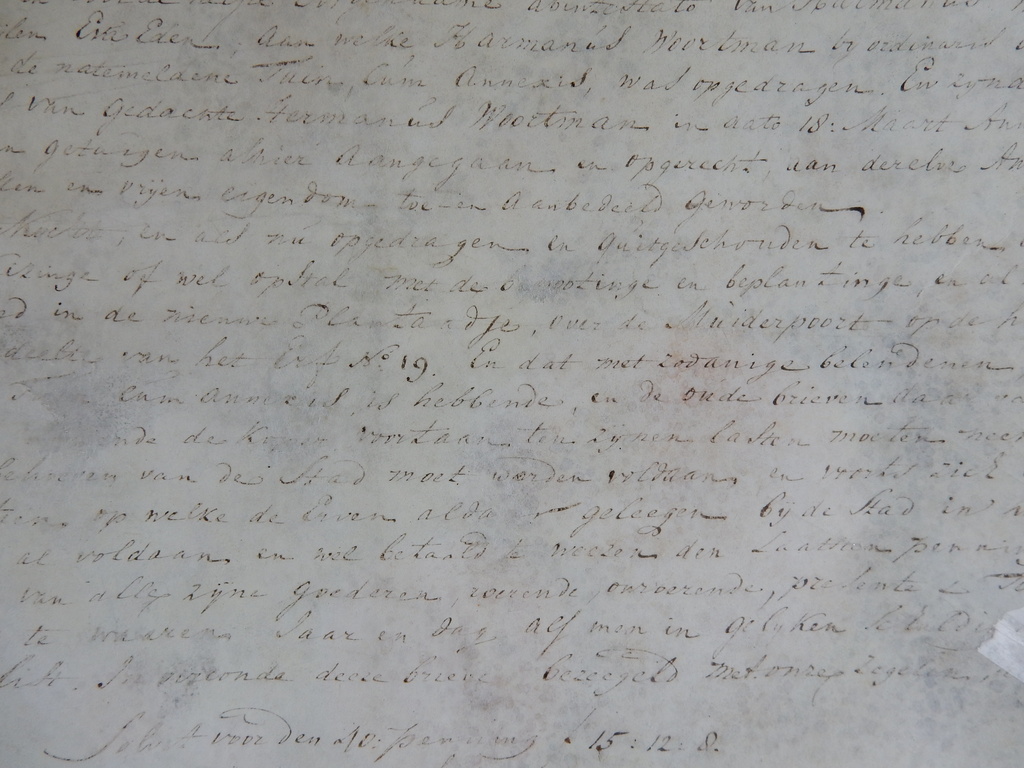 abintestato van Harmanus
Erte Eden, Aan welke Harmanus Woortman by ordinaris
de natemeldene Tuin, Cum Annexis, was opgedragen. En zyna
van gedachte Hermanus Woortman in dato 18: Maart An
n getuigen alhier aangegaan en opgerecht, aan dezelve An
en vrijen eigendom toe en Aanbedeeld geworden
en als nu opgedragen en quitgeschouden te hebben
of wel opstal met de bepootinge en beplantinge, en al
nd in de nieuwe Plantaadje, over de Muiderpoort op de h
van het Erf No. 19. En dat met zodanige belendenen
Cum Annexis, is hebbende, en de oude brieven daar va
de Koper voortaan ten zynen lasten moeten neem
van de Stad moet werden voldaan, en voorts
op welke de Erven aldaar geleegen by de Stad in
al voldaan en wel betaald te weezen den Laatsten pennin
van alle zyne goederen, roerende, onroerende, presente
te waaren Jaar en Dag, alsmen in gelyken schuldig
list. In oirconda deeze brieve bezeegeld met onze zegelen
voor den 40: penning f 15:12:8.